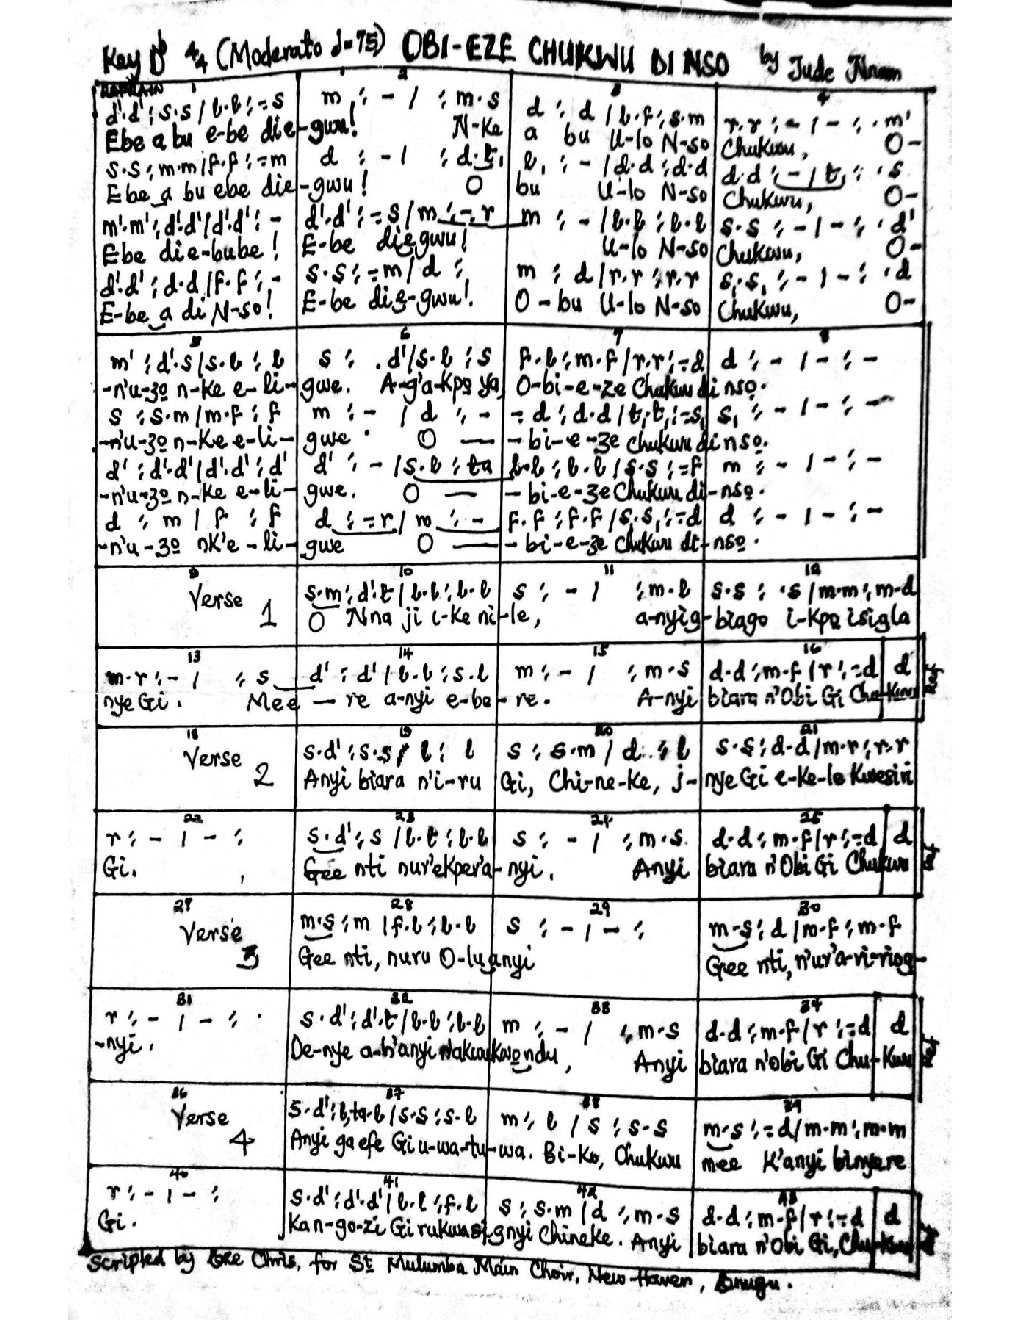 Key D♭ 4/4 (Moderato d=75) OBI-EZE CHUKWU DI NSO by Jude Nnam
REFRAIN 1 2 3 4
d'.d' : s.s / l.l : .=s m : - / : m.s d : d / l.f : s.m r.r : - / - : . m'
Ebe a bu e-be die-gwu! N-ke a bu U-lo N-so Chukwu, O-
s.s : m.m / f.f : .=m d : - / : d.t, l, : - / d.d : d.d d.d : - / t, : . s
Ebe a bu ebe die-gwu! O bu U-lo N-so Chukwu, O-
m'.m' : d'.d' / d'.d' : - d'.d' : .=s / m : - . r m : - / l.l : l.l s.s : - / - : . d'
Ebe die-bube! E-be die gwu! U-lo N-so Chukwu, O-
d'.d' : d.d / f.f : - s.s : .=m / d : m : d / r.r : r.r s,.s, : - / - : . d
E-be a di N-so! E-be die-gwu! O-bu U-lo N-so Chukwu, O-
5 6 7 8
m' : d'.s / s.l : l s : . d' / s.l : s f.l : m.f / r.r : .=d d : - / - : -
-n'u-zo n-ke e-li-gwe. A-g'a-kpo ya, O-bi-e-ze Chukwu di nso.
s : s.m / m.f : f m : - / d : - = d : d.d / t,.t, : .=s, s, : - / - : -
-n'u-zo n-ke e-li-gwe. O — - bi-e-ze Chukwu di nso.
d' : d'.d' / d'.d' : d' d' : - / s.l : ta l.l : l.l / s.s : .=f m : - / - : -
-n'u-zo n-ke e-li-gwe. O — - bi-e-ze Chukwu di-nso.
d : m / f : f d : .=r / m : - f.f : f.f / s.s, : .=d d : - / - : -
-n'u-zo nk'e-li-gwe O — - bi-e-ze Chukwu di-nso.
9 10 11 12
Verse 1 s.m : d'.t / l.l : l.l s : - / : m.l s.s : .s / m.m : m.d
O Nna ji i-ke ni-le, a-nyig-biago i-kpe isigla
13 14 15 16
m.r : - / : s d' : d' / l.l : s.l m : - / : m.s d.d : m.f / r : .=d d Ref
nye Gi. Mee — re a-nyi e-be-re. A-nyi biara n'Obi Gi Chu-kwu
18 19 20 21
Verse 2 s.d' : s.s / l : l s : s.m / d : l s.s : d.d / m.r : r.r
Anyi biara n'i-ru Gi, Chi-ne-ke, i-nye Gi e-ke-le Kwesiri
22 23 24 25
r : - / - : s.d' : s / l.t : l.l s : - / : m.s d.d : m.f / r : .=d d Ref
Gi. Gee nti nur'ekper'a-nyi. Anyi biara n'Obi Gi Chukwu
27 28 29 30
Verse 3 m.s : m / f.l : l.l s : - / - : m.s : d / m.f : m.f
Gee nti, nuru O-lu anyi Gee nti, n'ur'a-ri-riog-
31 32 33 34
r : - / - : . s.d' : d'.t / l.l : l.l m : - / : m.s d.d : m.f / r : .=d d Ref
-nyi. De-nye a-h'anyi n'akwukwo ndu, Anyi biara n'obi Gi Chu-kwu
36 37 38 39
Verse 4 s.d' : l,ta.l / s.s : s.l m : l / s : s.s m.s : .=d / m.m : m.m
Anyi ga efe Gi u-wa-tu-wa. Bi-ko, Chukwu mee k'anyi binyere
40 41 42 43
r : - / - : s.d' : d'.d' / l.l : f.l s : s.m / d : m.s d.d : m.f / r : .=d d Ref
Gi. Kan-go-zi Gi rukwasi anyi Chineke. Anyi biara n'Obi Gi, Chu-kwu
Scripted by Eze Chris, for St. Mulumba Main Choir, New-Haven, Enugu.